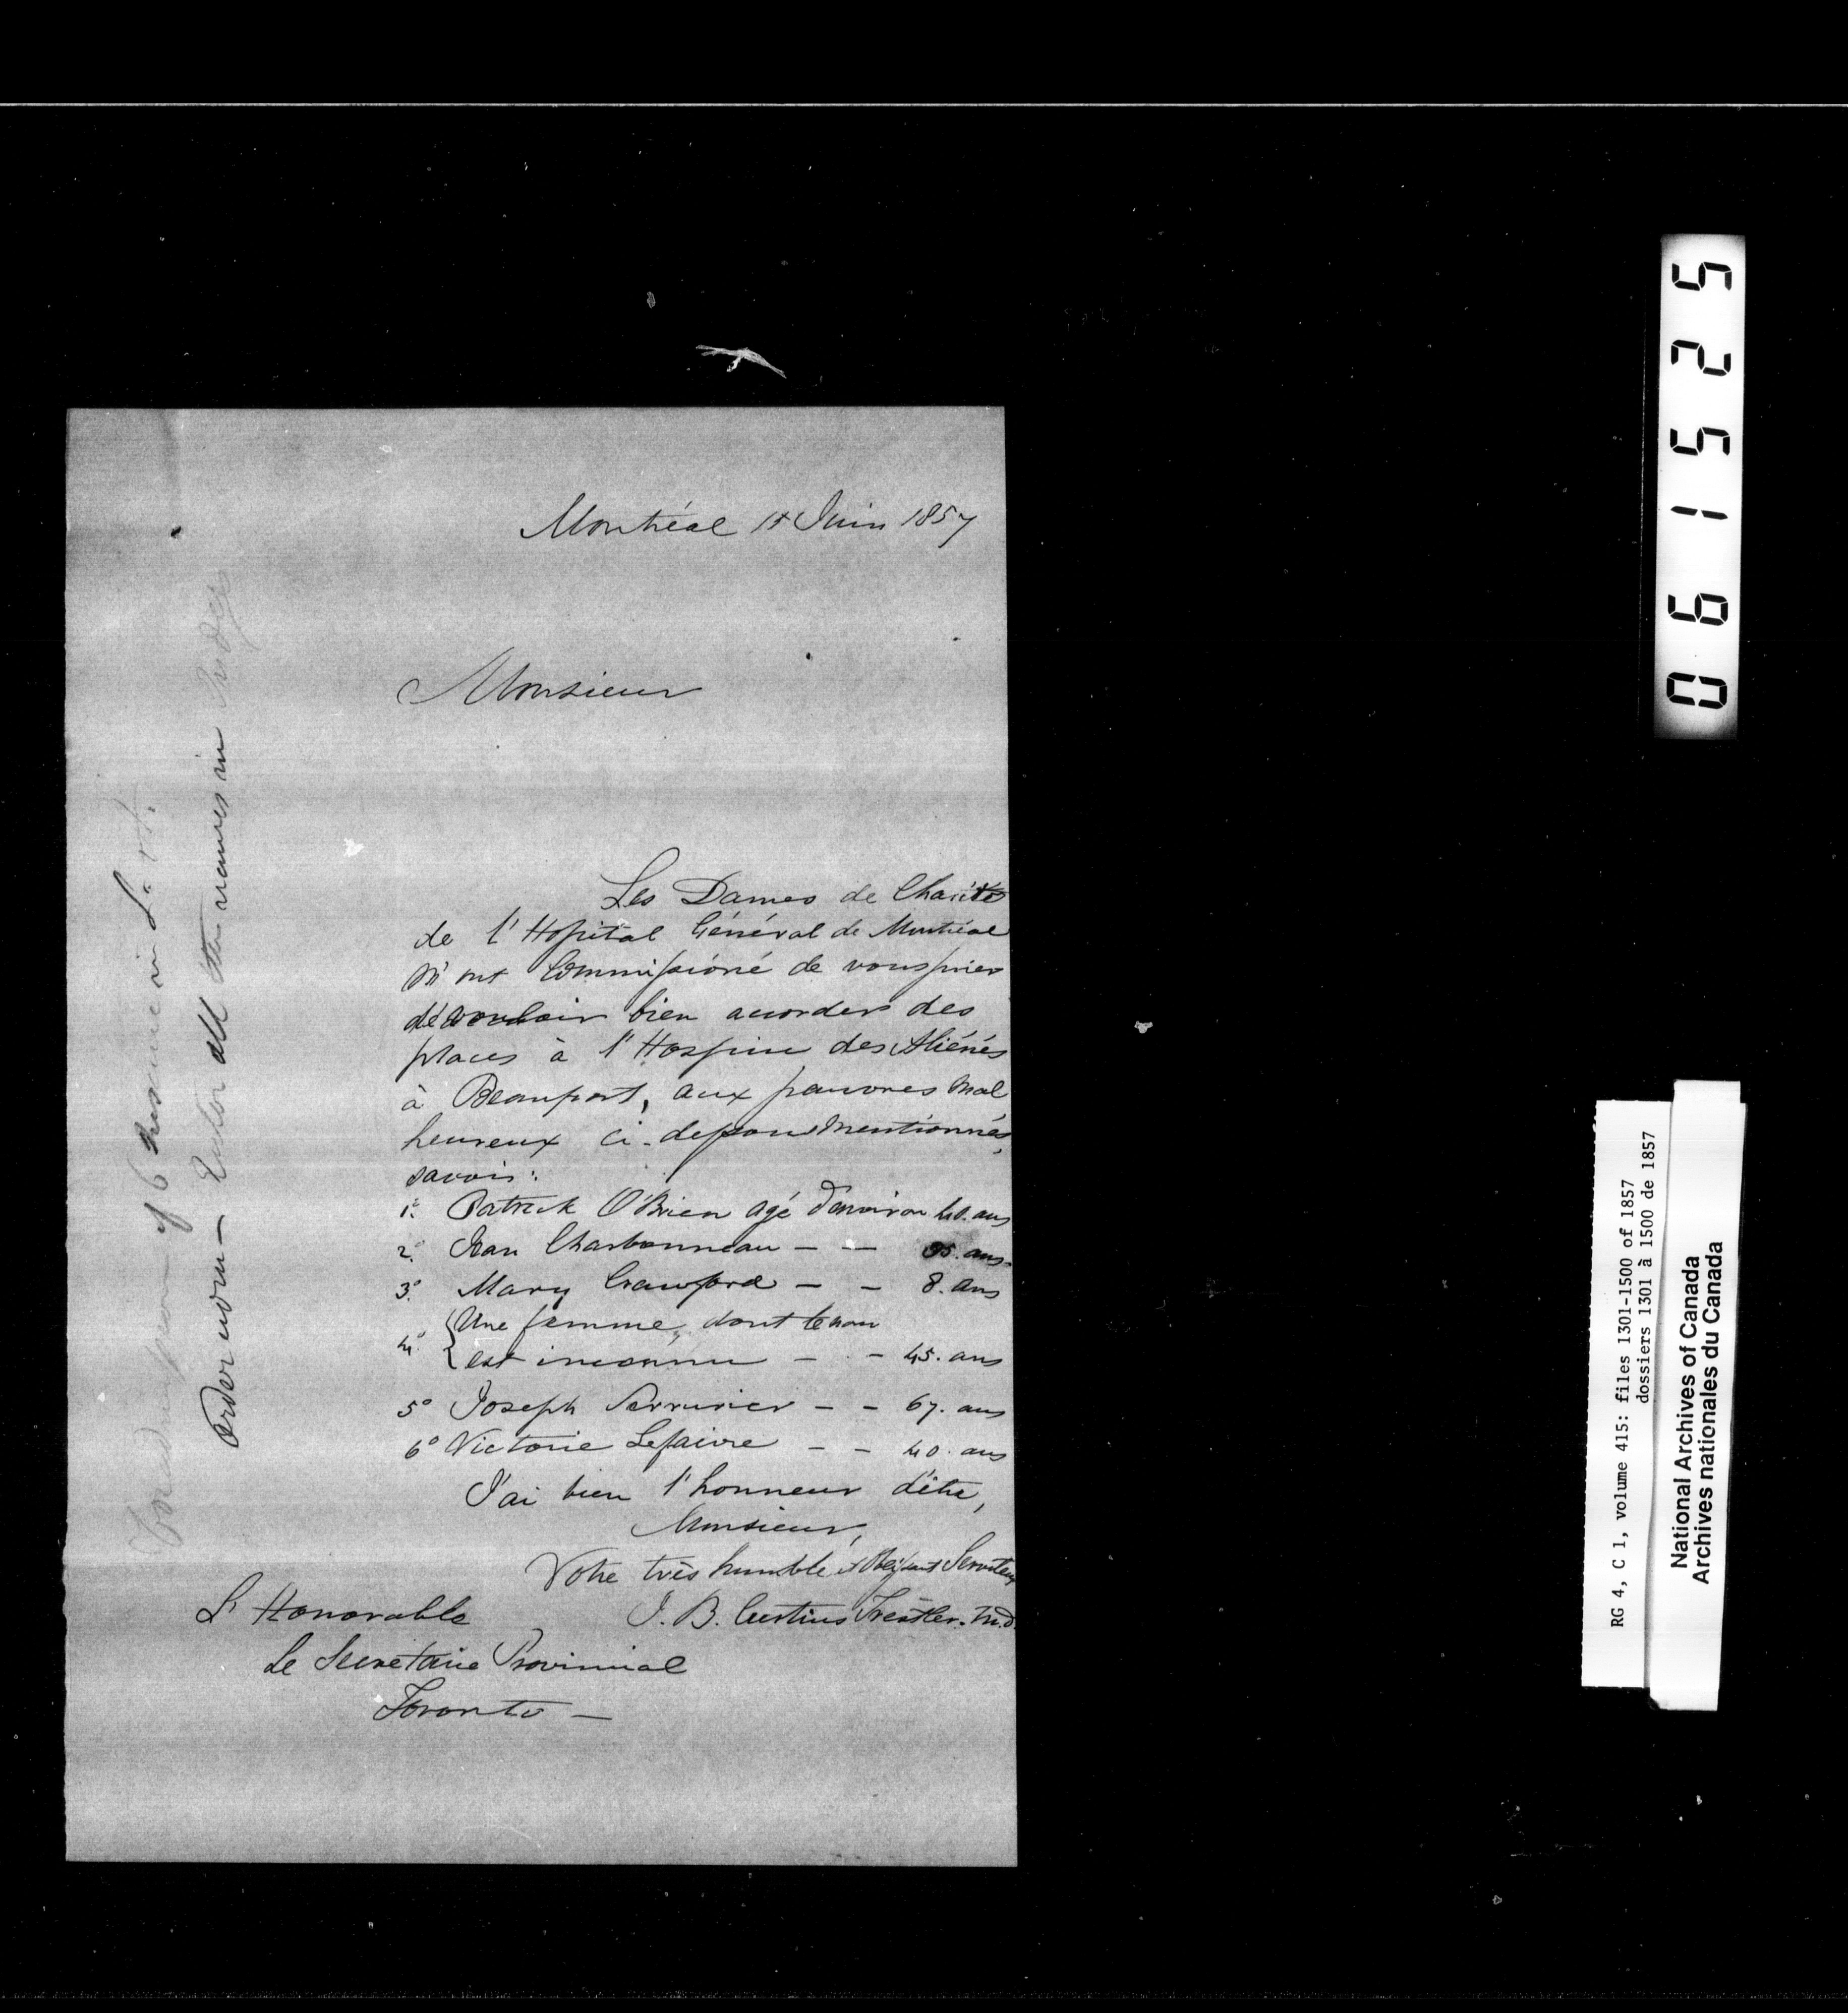 Montréal 1r Juin 1857
Monsieur
Les Dames de Charité
de l'Hopital Général de Montréal
m'ont Commissioné de vous prier
de vouloir bien accorder des
places à l'Hospice des Aliénés
à Beauport, aux pauvres mal
heureux ci-dessous mentionnés,
savoir:
1º. Patrick O'Brien agé d'environ 40. ans
2º. Jean Charbonneau – – 35. ans.
3º. Mary Crawford – – 8. ans
4º. { Une femme, dont le nom
est inconnu – – 45. ans
5º Joseph Serrurier – – 67. ans
6º Victorie Lefaivre – – 40. ans
J'ai bien l'honneur d'être,
Monsieur,
Votre très humble et Obéissant Serviteur
J. B. Curtius Trestler. m.d.
L'Honorable
Le Secretaire Provincial
Toronto –
of 6 Insane in L.
Order won – Enter all the names in Index
061525
RG 4, C 1, volume 415: files 1301-1500 of 1857
dossiers 1301 à 1500 de 1857
National Archives of Canada
Archives nationales du Canada